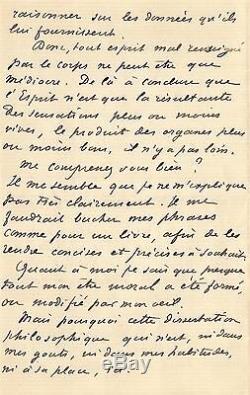 raisonner sur les données qu'ils
lui fournissent.
Donc, tout esprit mal renseigné
par le corps ne peut être que
médiocre. De là à conclure que
l'Esprit n'est que la résultante
des sensations plus ou moins
vives, le produit des organes plus
ou moins bons, il n'y a pas loin.
Me comprenez vous bien?
Il me semble que je ne m'explique
pas très clairement. Il me
faudrait bucher mes phrases
comme pour un livre, afin de les
rendre concises et précises à souhait.
Quant à moi je sais que presque
tout mon être moral a été formé
ou modifié par mon oeil.
Mais pourquoi cette dissertation
philosophique qui n'est, ni dans
mes gouts, ni dans mes habitudes,
ni à sa place, ici.
ebay